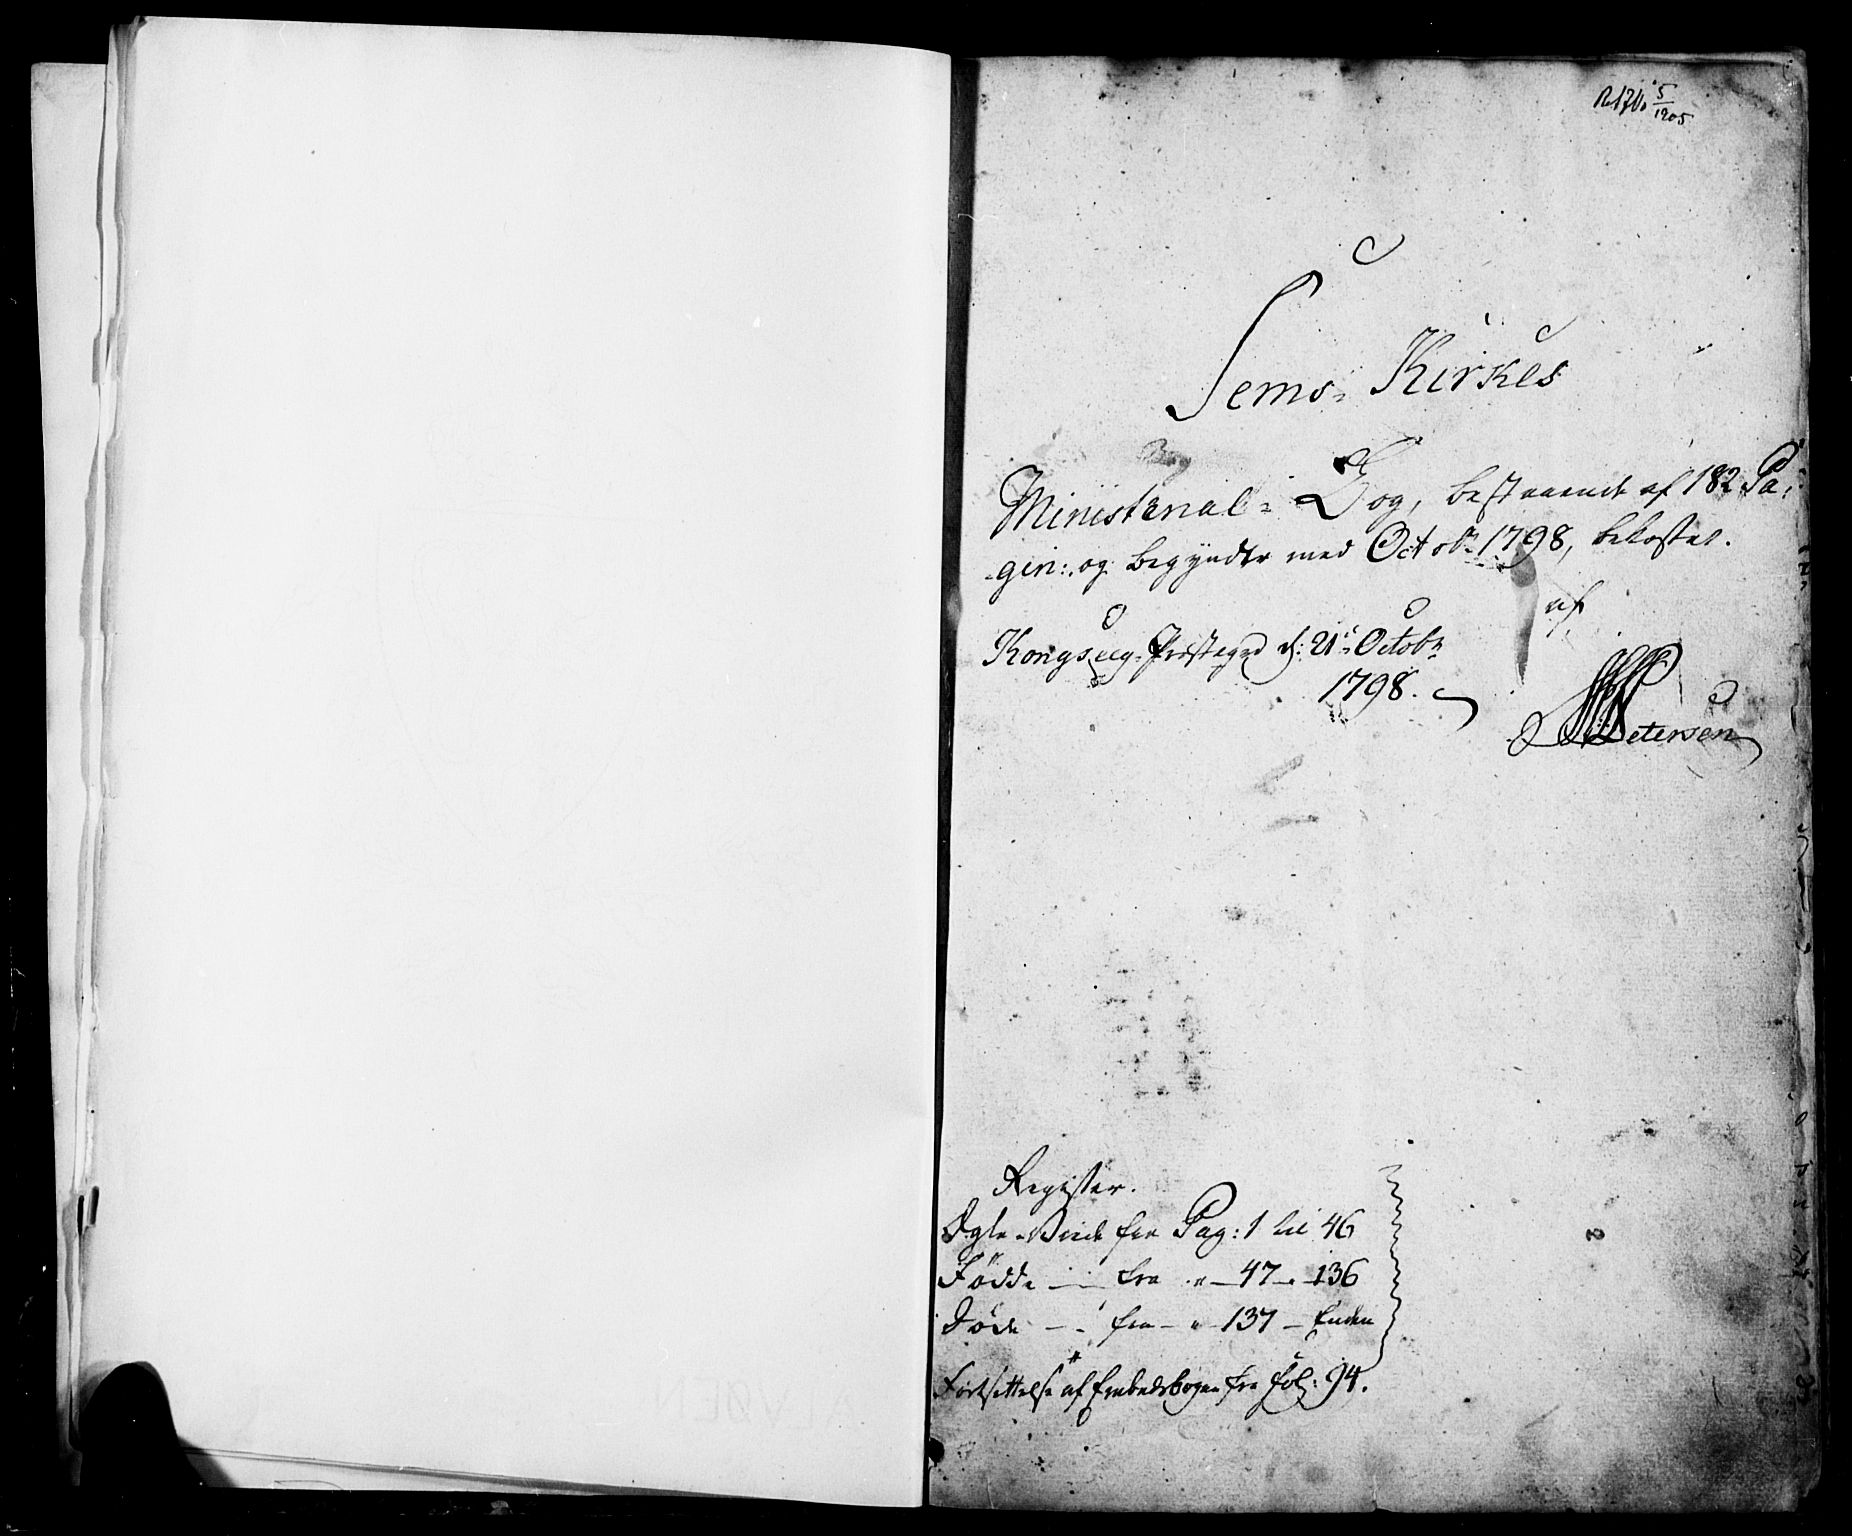 5/1905
Sems Kirkes
Ministerial- Bog, bestaaende af 182 Pa-
gin: og begynder med Octobr 1798, bekostet
af
Kongseeg Præstegrd d: 21 Octobr
1798.
Petersen
Register.
fra Pag: 1 til 46
Fødde fra " 47 " 136
Døde fra " 137 – Enden
Fortsettelse af Embedsbogen fra Fol: 94.
ALVØEN